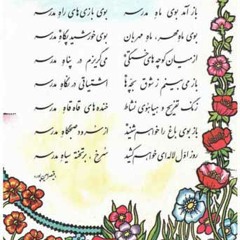 باز آمد بوی ماه مدرسه بوی بازی‌های راه مدرسه
بوی ماه مهر، ماه مهربان بوی خورشید پگاه مدرسه
از میان کوچه‌های خستگی می‌گریزم در پناه مدرسه
باز می‌بینم ز شوق بچه‌ها اشتیاقی در نگاه مدرسه
زنگ تفریح و هیاهوی نشاط خنده‌های قاه قاه مدرسه
باز بوی باغ را خواهم شنید از سرود صبحگاه مدرسه
روز اول لاله‌ای خواهم کشید سرخ، بر تخته سیاه مدرسه
قیصر امین پور